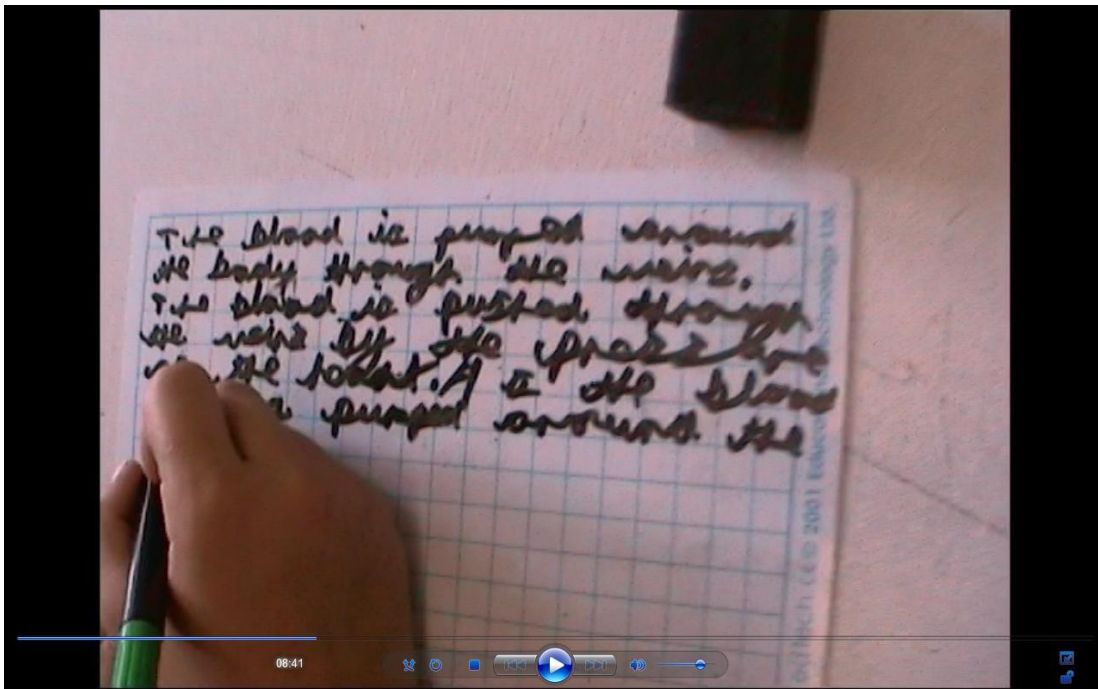 The blood is pumped around
the body through the veins.
The blood is pushed through
the veins by the pressure
the heart. A I the blood
pumped around the
© 2001
08:41